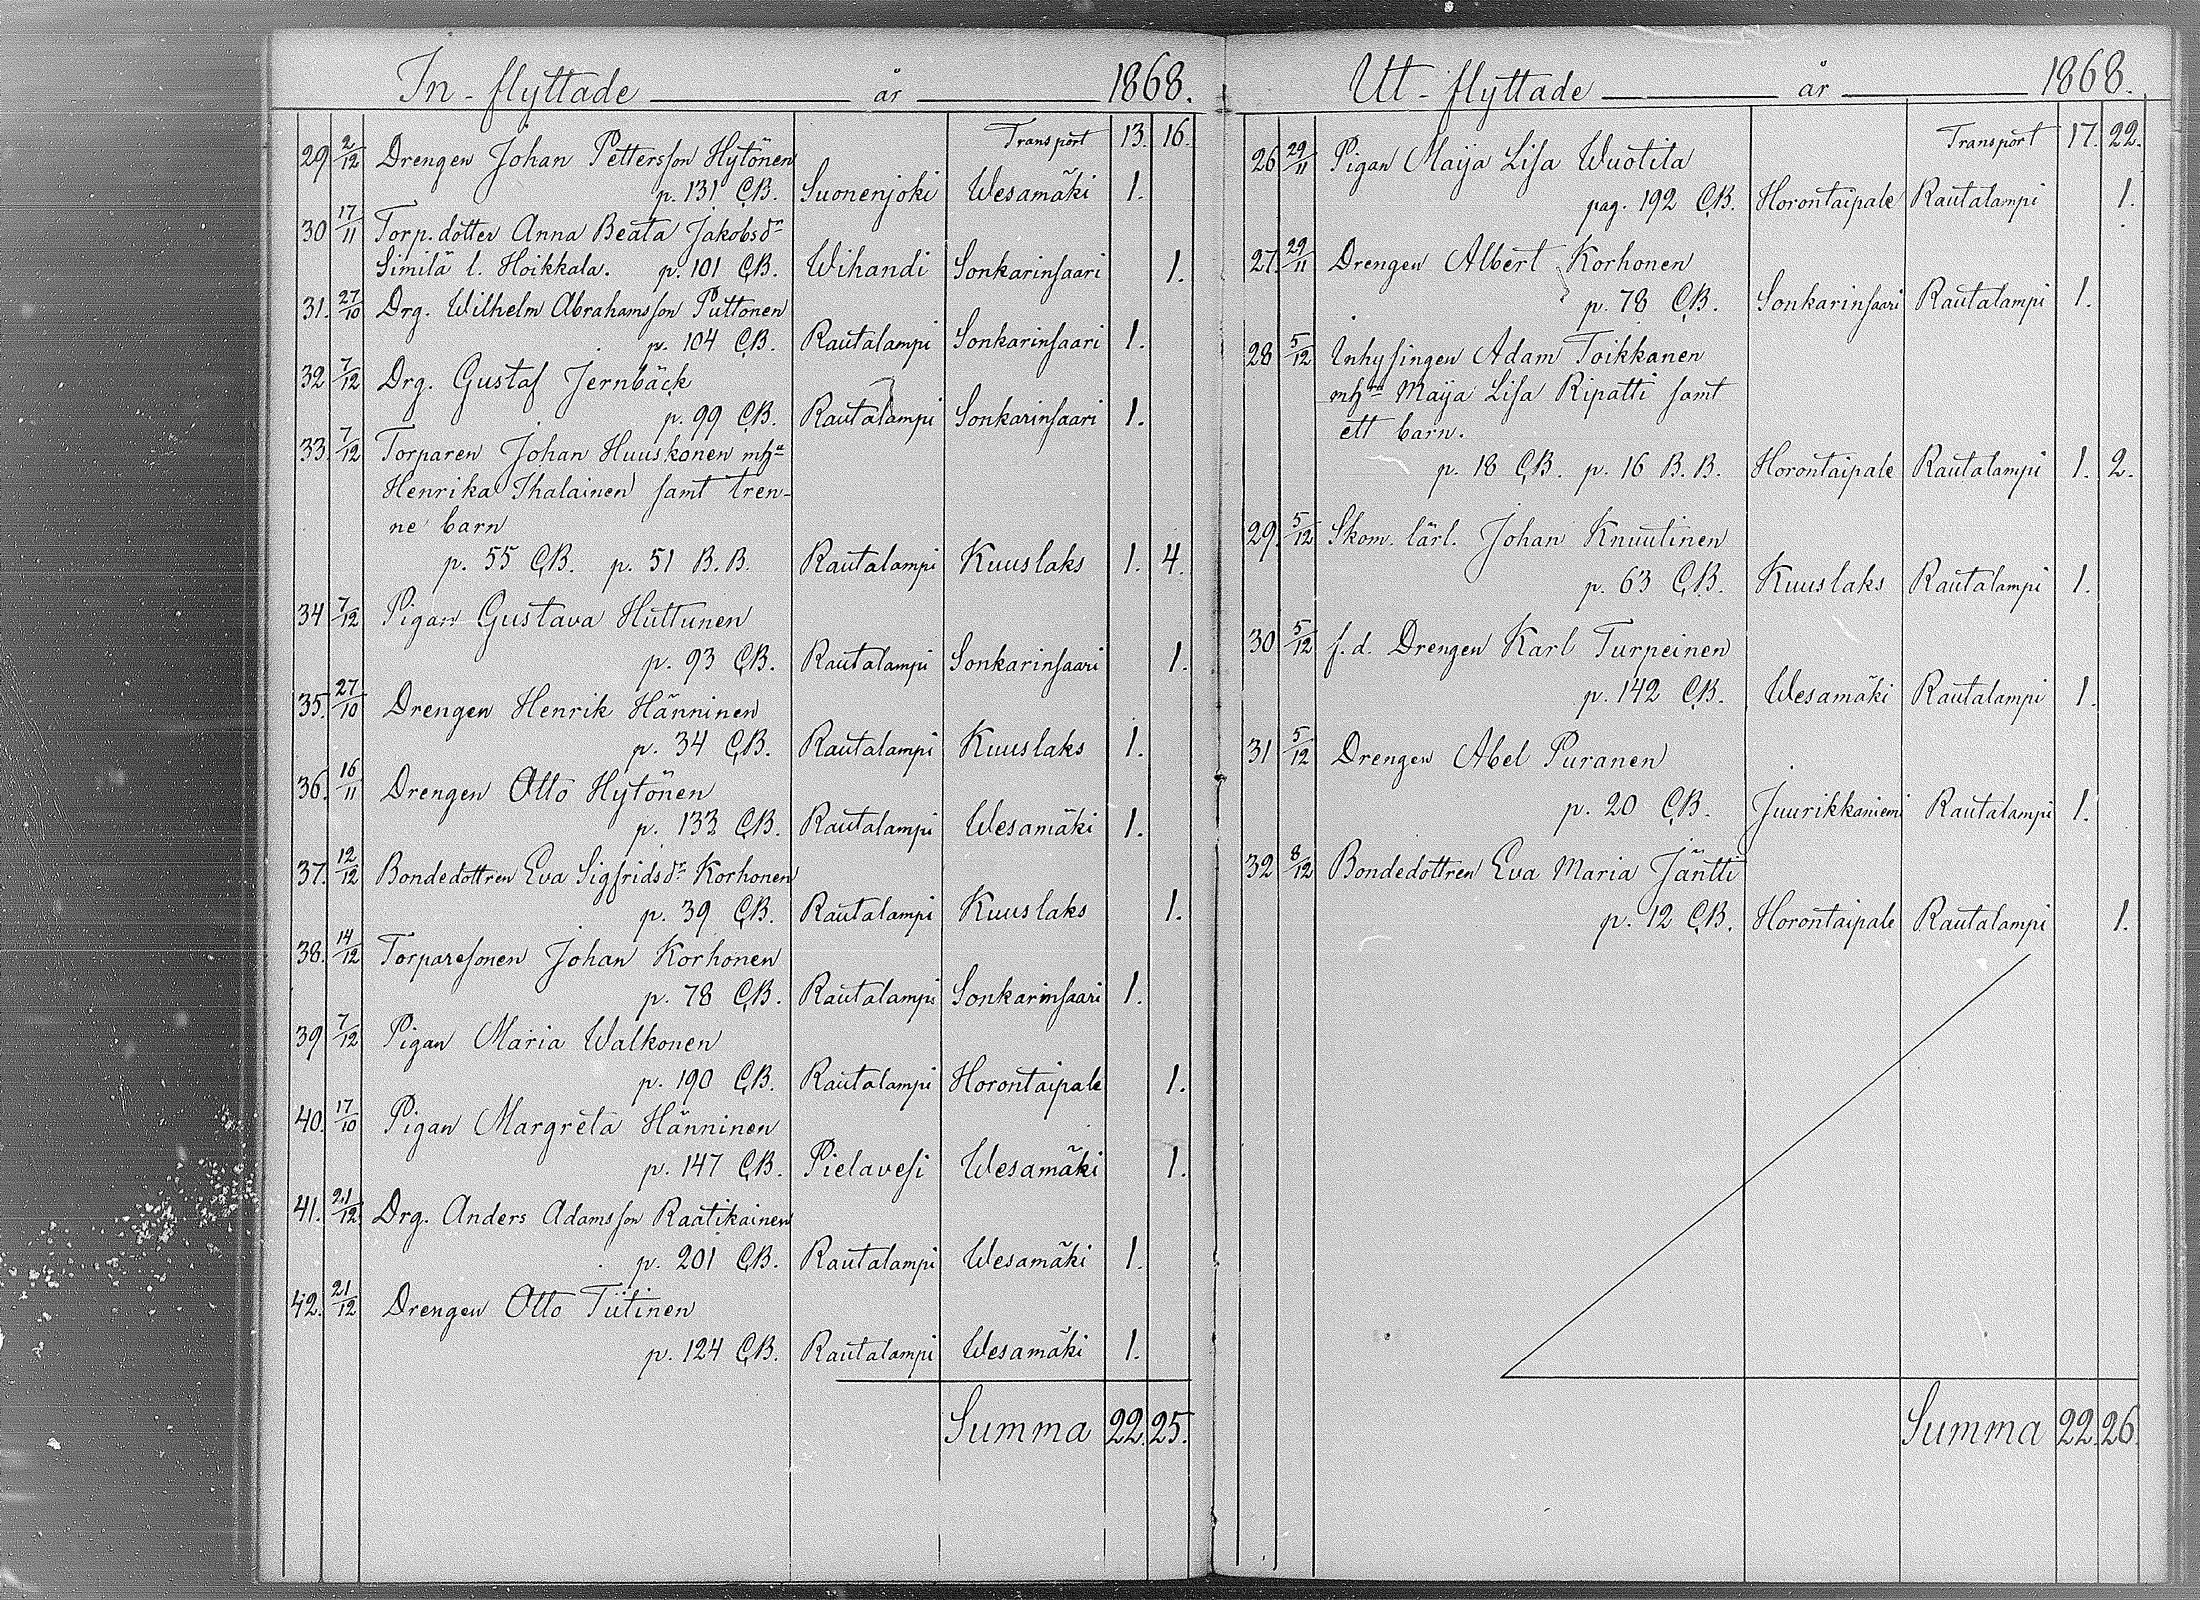 In-flyttade år 1868.
Transport 13. 16.
29 2/12 Drengen Johan Pettersson Hytönen
p. 131 C,B. Suonenjoki Wesamäki 1.
30 17/11 Torp.dotter Anna Beata Jakobsdr
Similä l. Hoikkala. p. 101 C,B. Wihandi Sonkarinsaari 1.
31. 27/10 Drg. Wilhelm Abrahamsson Puttonen
p. 104 C,B. Rautalampi Sonkarinsaari 1.
32 7/12 Drg. Gustaf Jernbäck
p. 99 C,B. Rautalampi Sonkarinsaari 1.
33. 7/12 Torparen Johan Huuskonen mhu
Henrika Ihalainen samt tren-
ne barn
p. 55 C,B. p. 51 B.B. Rautalampi Kuuslaks 1. 4.
34 7/12 Pigan Gustava Huttunen
p. 93 C,B. Rautalampi Sonkarinsaari 1.
35. 27/10 Drengen Henrik Hänninen
p. 34 C,B. Rautalampi Kuuslaks 1.
36. 16/11 Drengen Otto Hytönen
p. 133 C,B. Rautalampi Wesamäki 1.
37. 12/12 Bondedottren Eva Sigfridsdr Korhonen
p. 39 C,B. Rautalampi Kuuslaks 1.
38. 14/12 Torparesonen Johan Korhonen
p. 78 C,B. Rautalampi Sonkarinsaari 1.
39 7/12 Pigan Maria Walkonen
p. 190 C,B. Rautalampi Horontaipale 1.
40. 17/10 Pigan Margreta Hänninen
p. 147 C,B. Pielavesi Wesamäki 1.
41. 21/12 Drg. Anders Adamsson Raatikainen
p. 201 C,B. Rautalampi Wesamäki 1.
42. 21/12 Drengen Otto Tiitinen
p. 124 C,B. Rautalampi Wesamäki 1.
Summa 22. 25.
Ut-flyttade år 1868.
Transport 17. 22.
26 29/11 Pigan Maija Lisa Wuotila
pag. 192 C,B. Horontaipale Rautalampi 1.
27. 29/11 Drengen Albert Korhonen
p. 78 C,B. Sonkarinsaari Rautalampi 1.
28 5/12 Inhysingen Adam Toikkanen
mhu Maija Lisa Ripatti samt
ett barn.
p. 18 C,B. p. 16 B.B. Horontaipale Rautalampi 1. 2.
29. 5/12 Skom. lärl. Johan Knuutinen
p. 63 C,B. Kuuslaks Rautalampi 1.
30 5/12 f.d. Drengen Karl Turpeinen
p. 142 C,B. Wesamäki Rautalampi 1.
31 5/12 Drengen Abel Puranen
p. 20 C,B. Juurikkaniemi Rautalampi 1.
32 8/12 Bondedottren Eva Maria Jäntti
p. 12 C,B. Horontaipale Rautalampi 1.
Summa 22. 26.